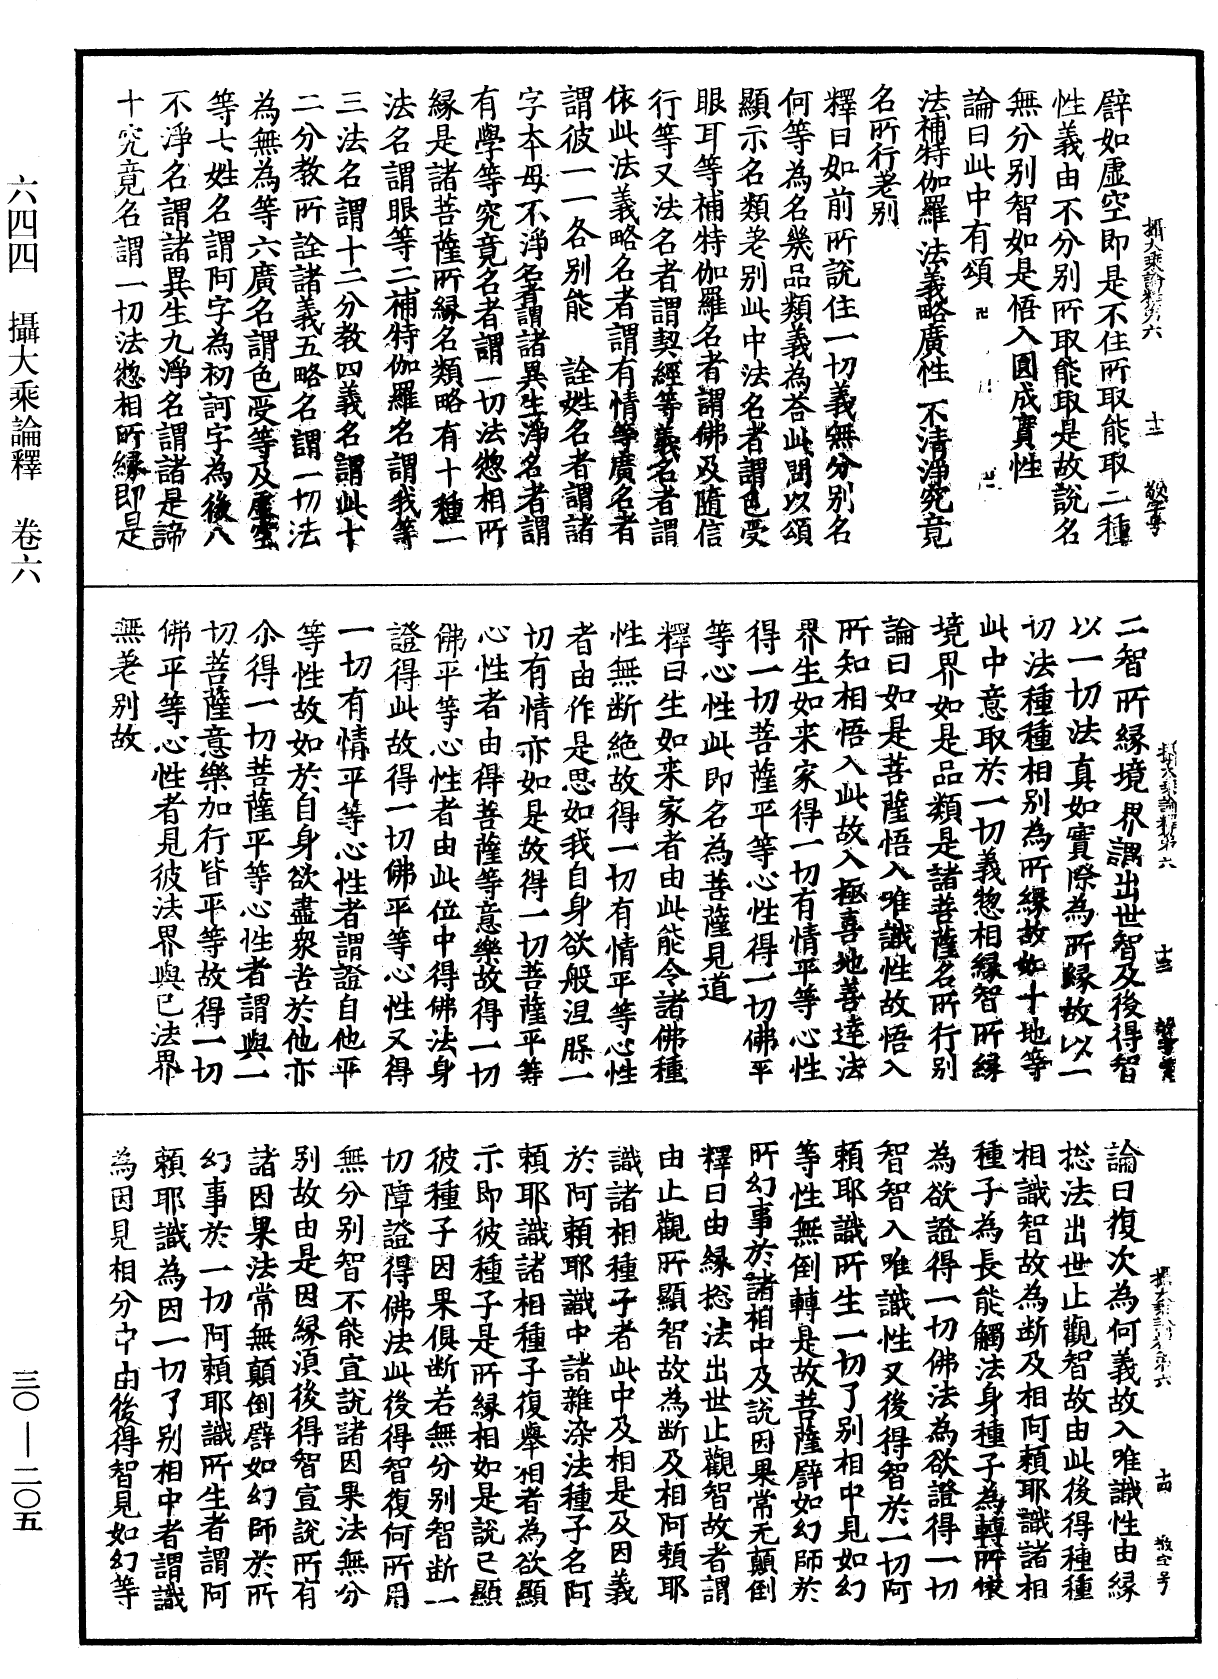 六四四　攝大乘論釋　卷六
三〇—二〇五
攝大乘論釋第六　十二　敬字号
譬如虛空即是不住所取能取二種
性義由不分別所取能取是故說名
無分別智如是悟入圓成實性
論曰此中有頌
法補特伽羅法義略廣性不清淨究竟
名所行差別
釋曰如前所說住一切義無分別名
何等為名幾品類義為荅此問以頌
顯示名類差別此中法名者謂色受
眼耳等補特伽羅名者謂佛及隨信
行等又法名者謂契經等義名者謂
依此法義略名者謂有情等廣名者
謂彼一一各別能　詮姓名者謂諸
字本母不淨名者謂諸異生淨名者謂
有學等究竟名者謂一切法惣相所
緣是諸菩薩所緣名類略有十種一
法名謂眼等二補特伽羅名謂我等
三法名謂十二分教四義名謂此十
二分教所詮諸義五略名謂一切法
為無為等六廣名謂色受等及虛空
等七姓名謂阿字為初訶字為後八
不淨名謂諸異生九淨名謂諸見諦
十究竟名謂一切法惣相所緣即是
攝大乘論釋第六　十三
二智所緣境界謂出世智及後得智
以一切法真如實際為所緣故以一
切法種種相別為所緣故如十地等
此中意取於一切義惣相緣智所緣
境界如是品類是諸菩薩名所行別
論曰如是菩薩悟入唯識性故悟入
所知相悟入此故入極喜地善達法
界生如来家得一切有情平等心性
得一切菩薩平等心性得一切佛平
等心性此即名為菩薩見道
釋曰生如来家者由此能令諸佛種
性無斷絕故得一切有情平等心性
者由作是思如我自身欲般涅槃一
切有情亦如是故得一切菩薩平等
心性者由得菩薩等意樂故得一切
佛平等心性者由此位中得佛法身
證得此故得一切佛平等心性又得
一切有情平等心性者謂證自他平
等性故如於自身欲盡衆苦於他亦
尒得一切菩薩平等心性者謂與一
切菩薩意樂加行皆平等故得一切
佛平等心性者見彼法界與己法界
無差別故
攝大乘論釋第六　十四　敬字号
論曰復次為何義故入唯識性由緣
揔法出世止觀智故由此後得種種
相識智故為斷及相阿賴耶識諸相
種子為長能觸法身種子為轉所依
為欲證得一切佛法為欲證得一切
智智入唯識性又後得智於一切阿
賴耶識所生一切了別相中見如幻
等性無倒轉是故菩薩譬如幻師於
所幻事於諸相中及說因果常无顛倒
釋曰由緣揔法出世止觀智故者謂
由止觀所顯智故為斷及相阿賴耶
識諸相種子者此中及相是及因義
於阿賴耶識中諸雜染法種子名阿
賴耶識諸相種子復舉相者為欲顯
示即彼種子是所緣相如是說已顯
彼種子因果俱斷若無分別智斷一
切障證得佛法此後得智復何所用
無分別智不能宣說諸因果法無分
別故由是因緣湏後得智宣說所有
諸因果法常無顛倒譬如幻師於所
幻事於一切阿賴耶識所生者謂阿
賴耶識為因一切了別相中者謂識
為因見相分中由後得智見如幻等